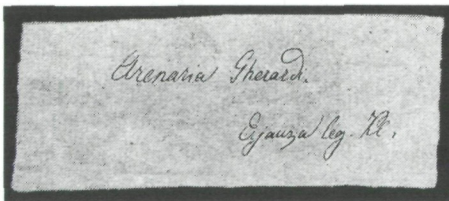 Arenaria Gherardi.
Erjauza leg.